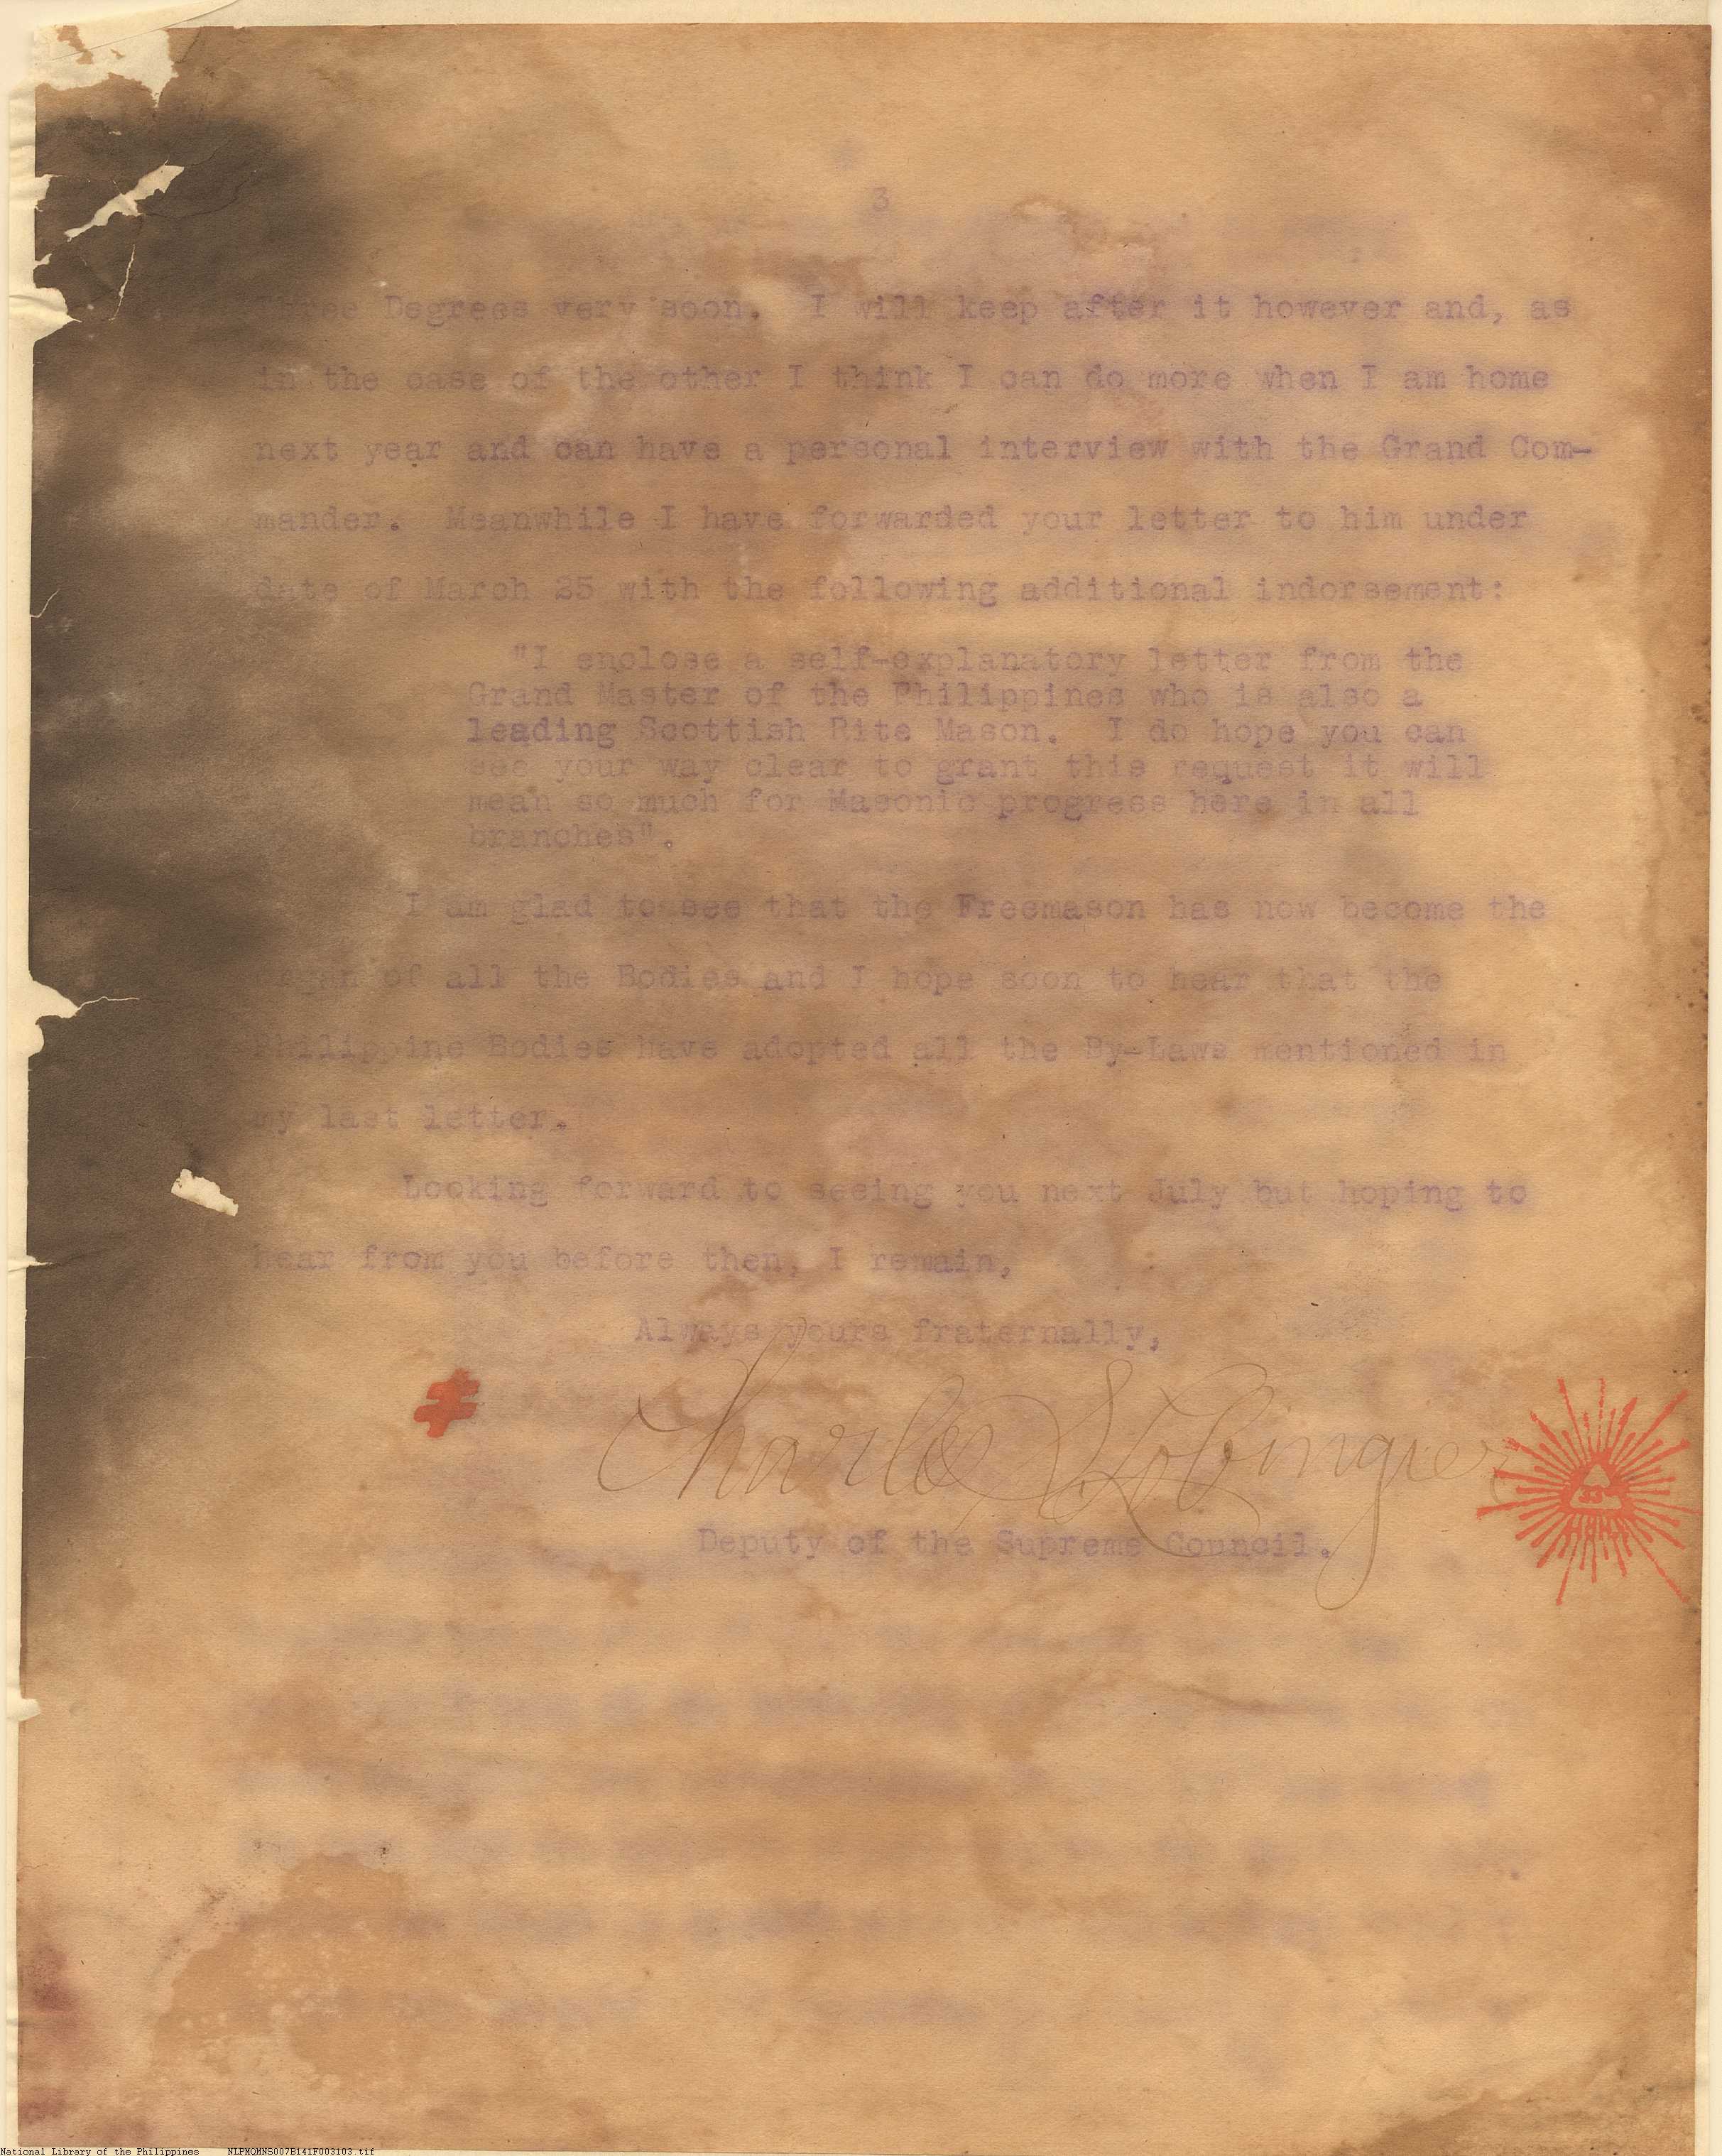 3
Three Degrees very soon. I will keep after it however and, as
in the case of the other I think I can do more when I am home
next year and can have a personal interview with the Grand Com-
mander. Meanwhile I have forwarded your letter to him under
date of March 25 with the following additional indorsement:
"I enclose a self-explanatory letter from the
Grand Master of the Philippines who is also a
leading Scottish Rite Mason. I do hope you can
see your way clear to grant this request it will
mean so much for Masonic progress here in all
branches".
I am glad to see that the Freemason has now become the
organ of all the Bodies and I hope soon to hear that the
Philippine Bodies have adopted all the By-Laws mentioned in
my last letter.
Looking forward to seeing you next July but hoping to
hear from you before then, I remain,
Always yours fraternally,
Charles S Lobingier
33
Deputy of the Supreme Council.
National Library of the Philippines NLPMQMNS007B141F003103.tif